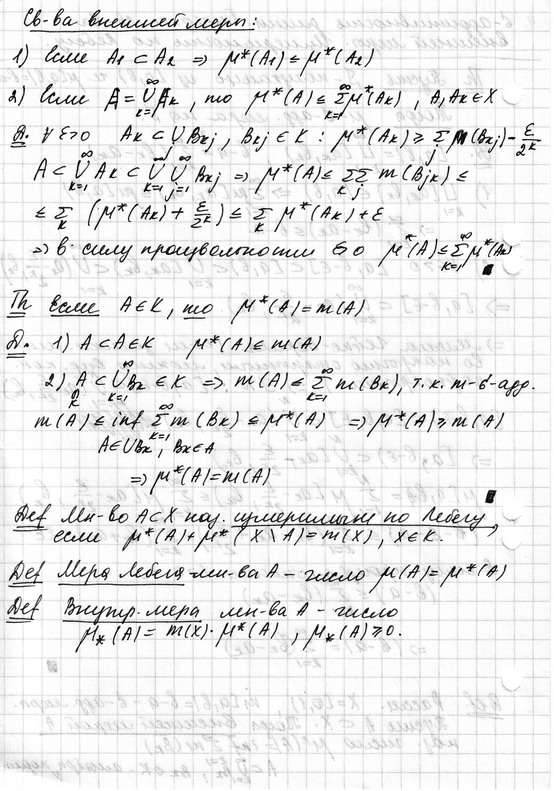 Св-ва внешней меры:
1) если A₁ ⊂ A₂ ⇒ μ*(A₁) ≤ μ*(A₂)
2) если A = ∪_{k=1}^∞ A_k, то μ*(A) ≤ Σ_{k=1}^∞ μ*(A_k), A, A_k ∈ X
Д. ∀ε>0 A_k ⊂ ∪_j B_{kj}, B_{kj} ∈ K : μ*(A_k) ≥ Σ_j m(B_{kj}) - ε/2^k
A ⊂ ∪_{k=1}^∞ A_k ⊂ ∪_{k=1}^∞ ∪_{j=1}^∞ B_{kj} ⇒ μ*(A) ≤ Σ_k Σ_j m(B_{jk}) ≤
≤ Σ_k (μ*(A_k) + ε/2^k) ≤ Σ_k μ*(A_k) + ε
⇒ в силу произвольности ε>0 μ*(A) ≤ Σ_{k=1}^∞ μ*(A_k)
Th Если A ∈ K, то μ*(A) = m(A)
Д. 1) A ⊂ A ∈ K μ*(A) ≤ m(A)
2) A ⊂ ∪_{k=1}^∞ B_k ∈ K ⇒ m(A) ≤ Σ_{k=1}^∞ m(B_k), т.к. m-σ-адд.
m(A) ≤ inf Σ_{k=1}^∞ m(B_k) ≤ μ*(A) ⇒ μ*(A) ≥ m(A)
A∈∪B_k, B_k∈A
⇒ μ*(A) = m(A)
Def Мн-во A⊂X наз. измеримым по Лебегу,
если μ*(A) + μ*(X \ A) = m(X), X∈K.
Def Мера Лебега мн-ва A – число μ(A) = μ*(A)
Def Внутр. мера мн-ва A – число
μ_*(A) = m(X) · μ*(A), μ_*(A) ≥ 0.